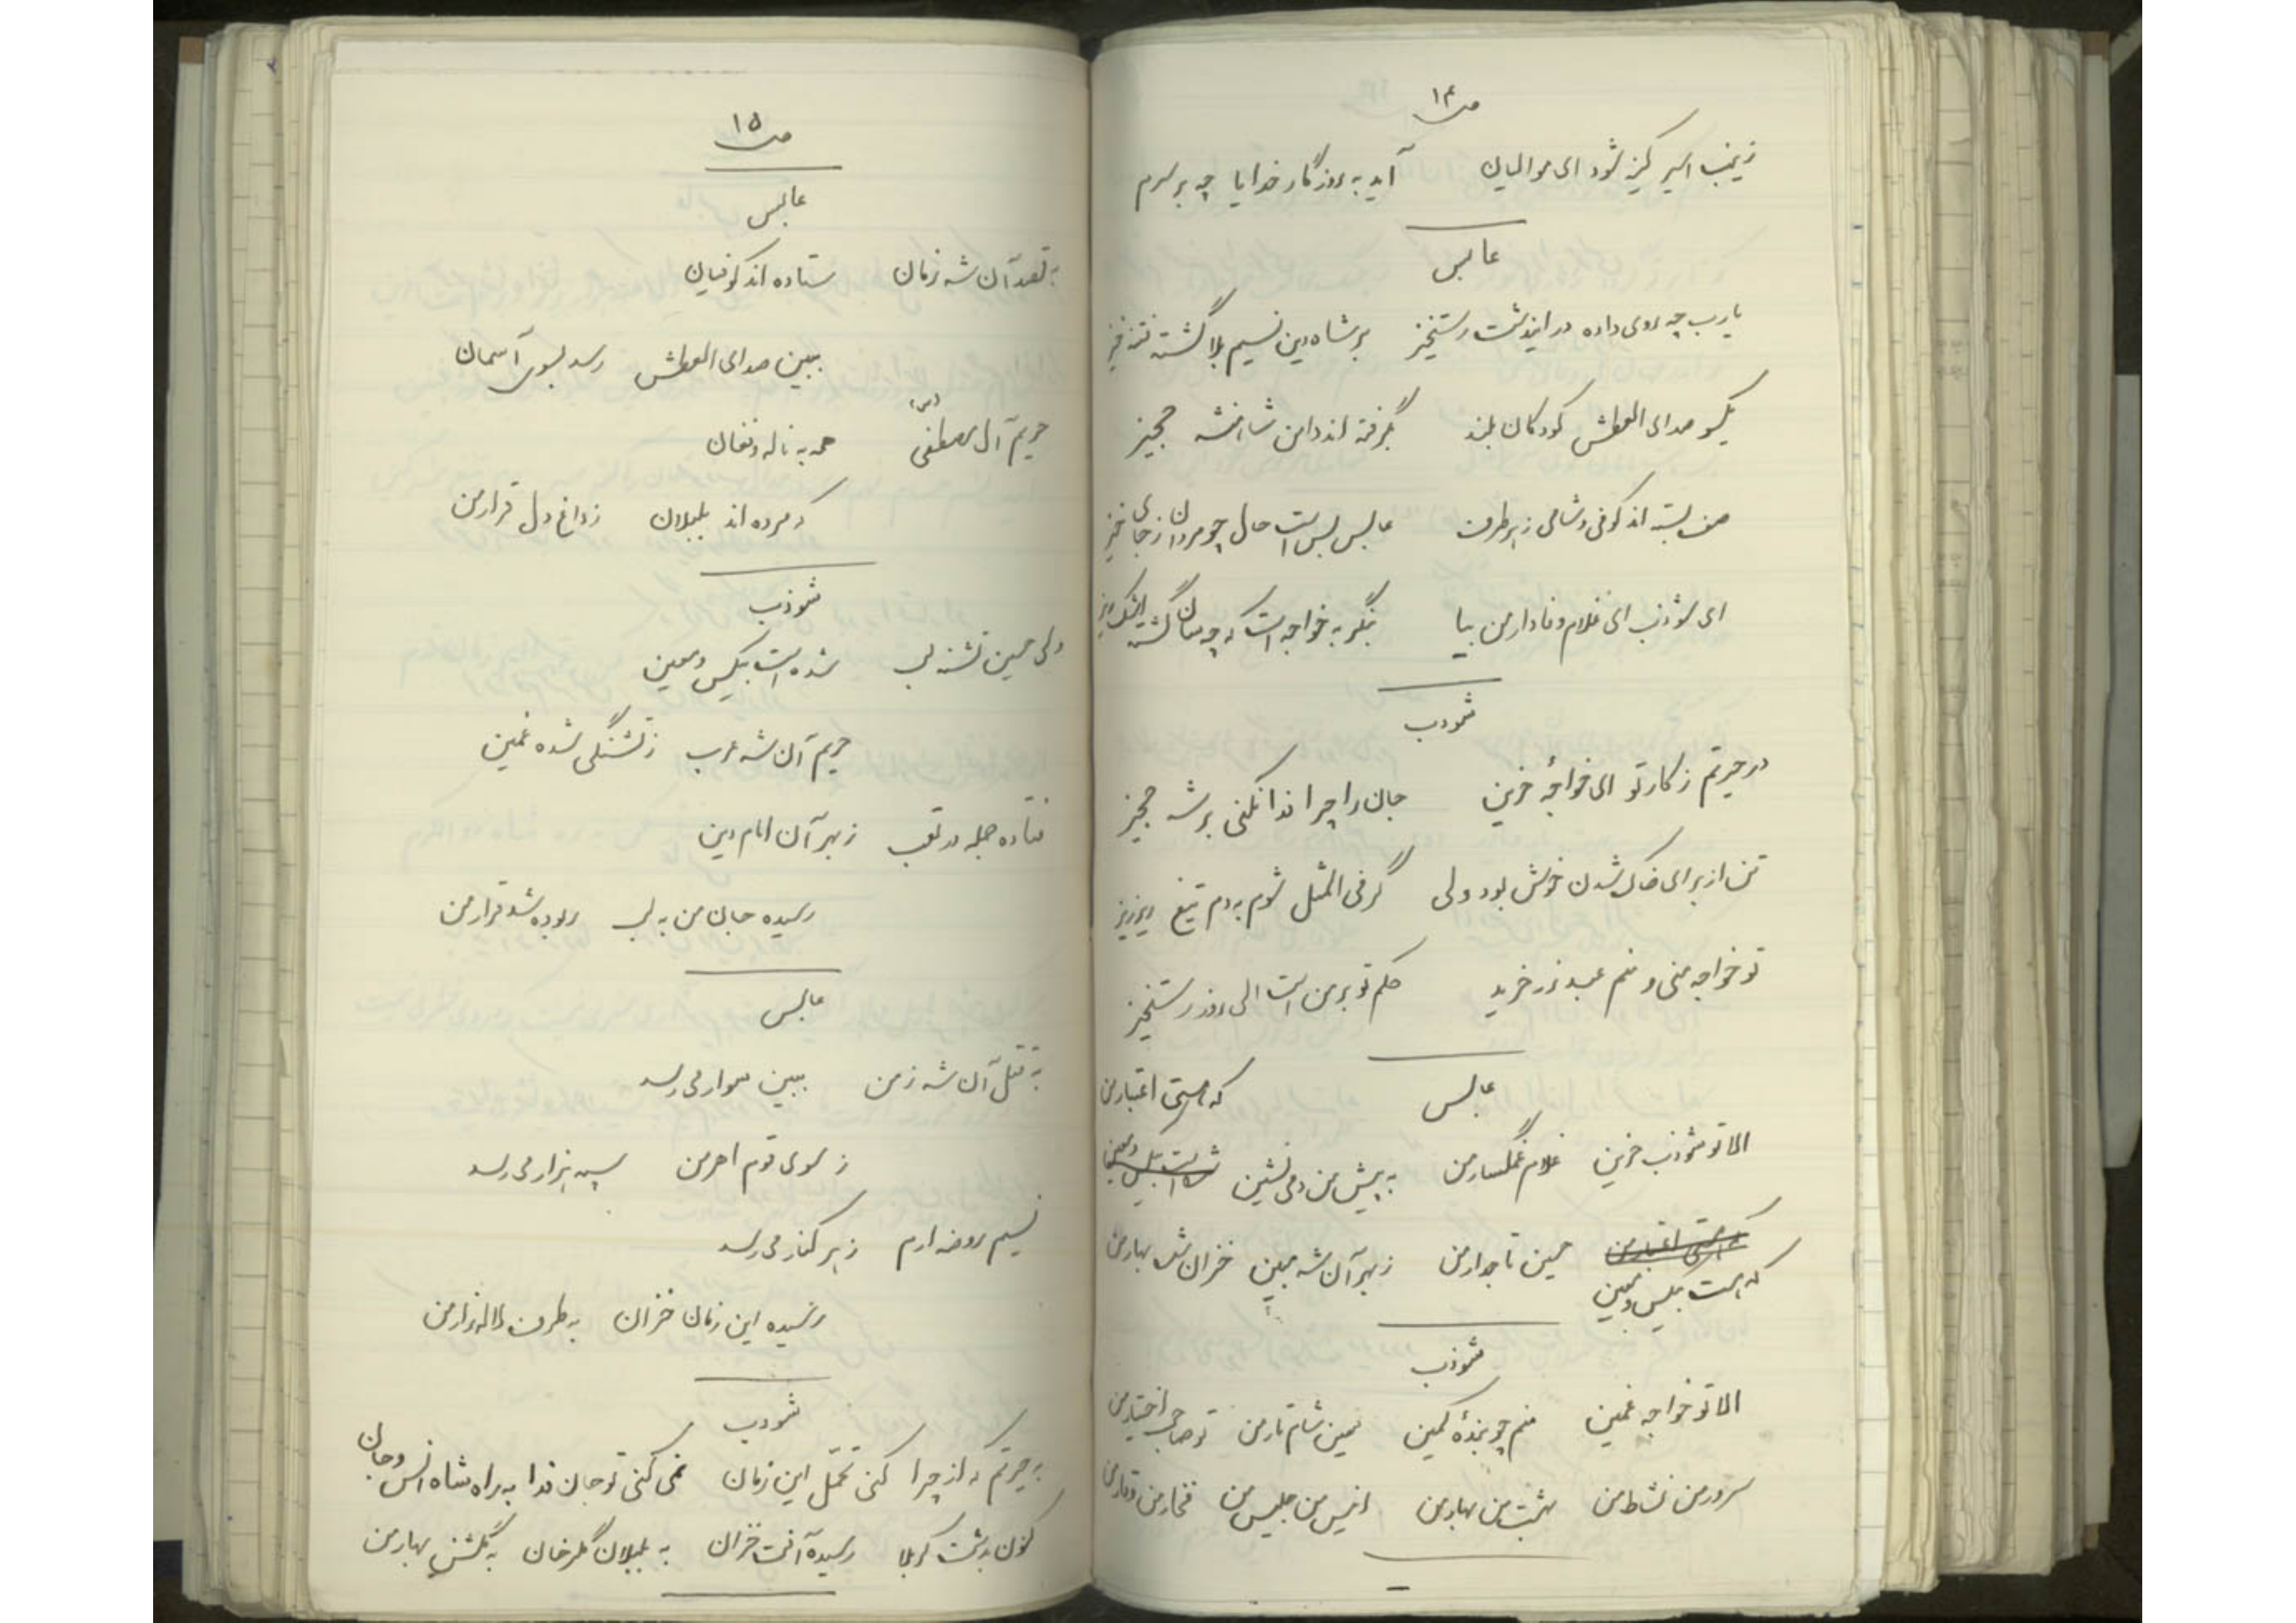 ص ۱۴
زینب اسیر کینه شود ای موالیان آید به روزگار خدایا چه بر سرم
عابس
یارب چه روی داده در ایندشت رستخیز بر شاه دین نسیم بلا گشته فتنه خیز
یکسو صدای العطش کودکان بلند بگرفته اند دامن شاهنشه حجیز
صف بسته اند کوفی و شامی ز هر طرف عابس بس است حال چو مردان ز جای خیز
ای شوذب ای غلام وفادار من بیا بنگر به خواجه است که چه سان گشته اشک ریز
شوذب
در حیرتم ز کار تو ای خواجهٔ حزین جان را چرا فدا نکنی بر شه حجیز
تن از برای خاک شدن خوش بود ولی گر فی المثل شوم به دم تیغ ریز ریز
تو خواجه منی و منم عبد زر خرید حکم تو بر من است الی روز رستخیز
عابس
الا تو شوذب حزین غلام غمگسار من به پیش من دمی نشین که هستی اعتبار من
که هست بیکس و معین حسین تاجدار من ز بهر آن شه مبین خزان شد بهار من
شوذب
الا تو خواجه غمین منم چو بندهٔ کمین ببین شام تار من تو صاحب اختیار من
سرور من نشاط من بهشت من بهار من انیس من جلیس من فخار من وقار من
ص ۱۵
عابس
به قصد آن شه زمان ستاده اند کوفیان
ببین صدای العطش رسد بسوی آسمان
حریم آل مصطفی (ص) همه به ناله و فغان
که مرده اند بلبلان ز داغ دل قرار من
شوذب
ولی حسین تشنه لب شده است بیکس و معین
حریم آن شه عرب ز تشنگی شده غمین
فتاده جمله در تعب ز بهر آن امام دین
رسیده جان من به لب ربوده شد قرار من
عابس
به قتل آن شه زمن ببین سوار می رسد
ز سوی قوم اهرمن سپه هزار می رسد
نسیم روضه ارم ز هر کنار می رسد
رسیده این زمان خزان به طرف لاله زار من
شوذب
به حیرتم که از چرا کنی تحمّل این زمان نمی کنی تو جان فدا به راه شاه انس و جان
کنون بدشت کربلا رسیده آفت خزان به بلبلان گلرخان به گلشن بهار من